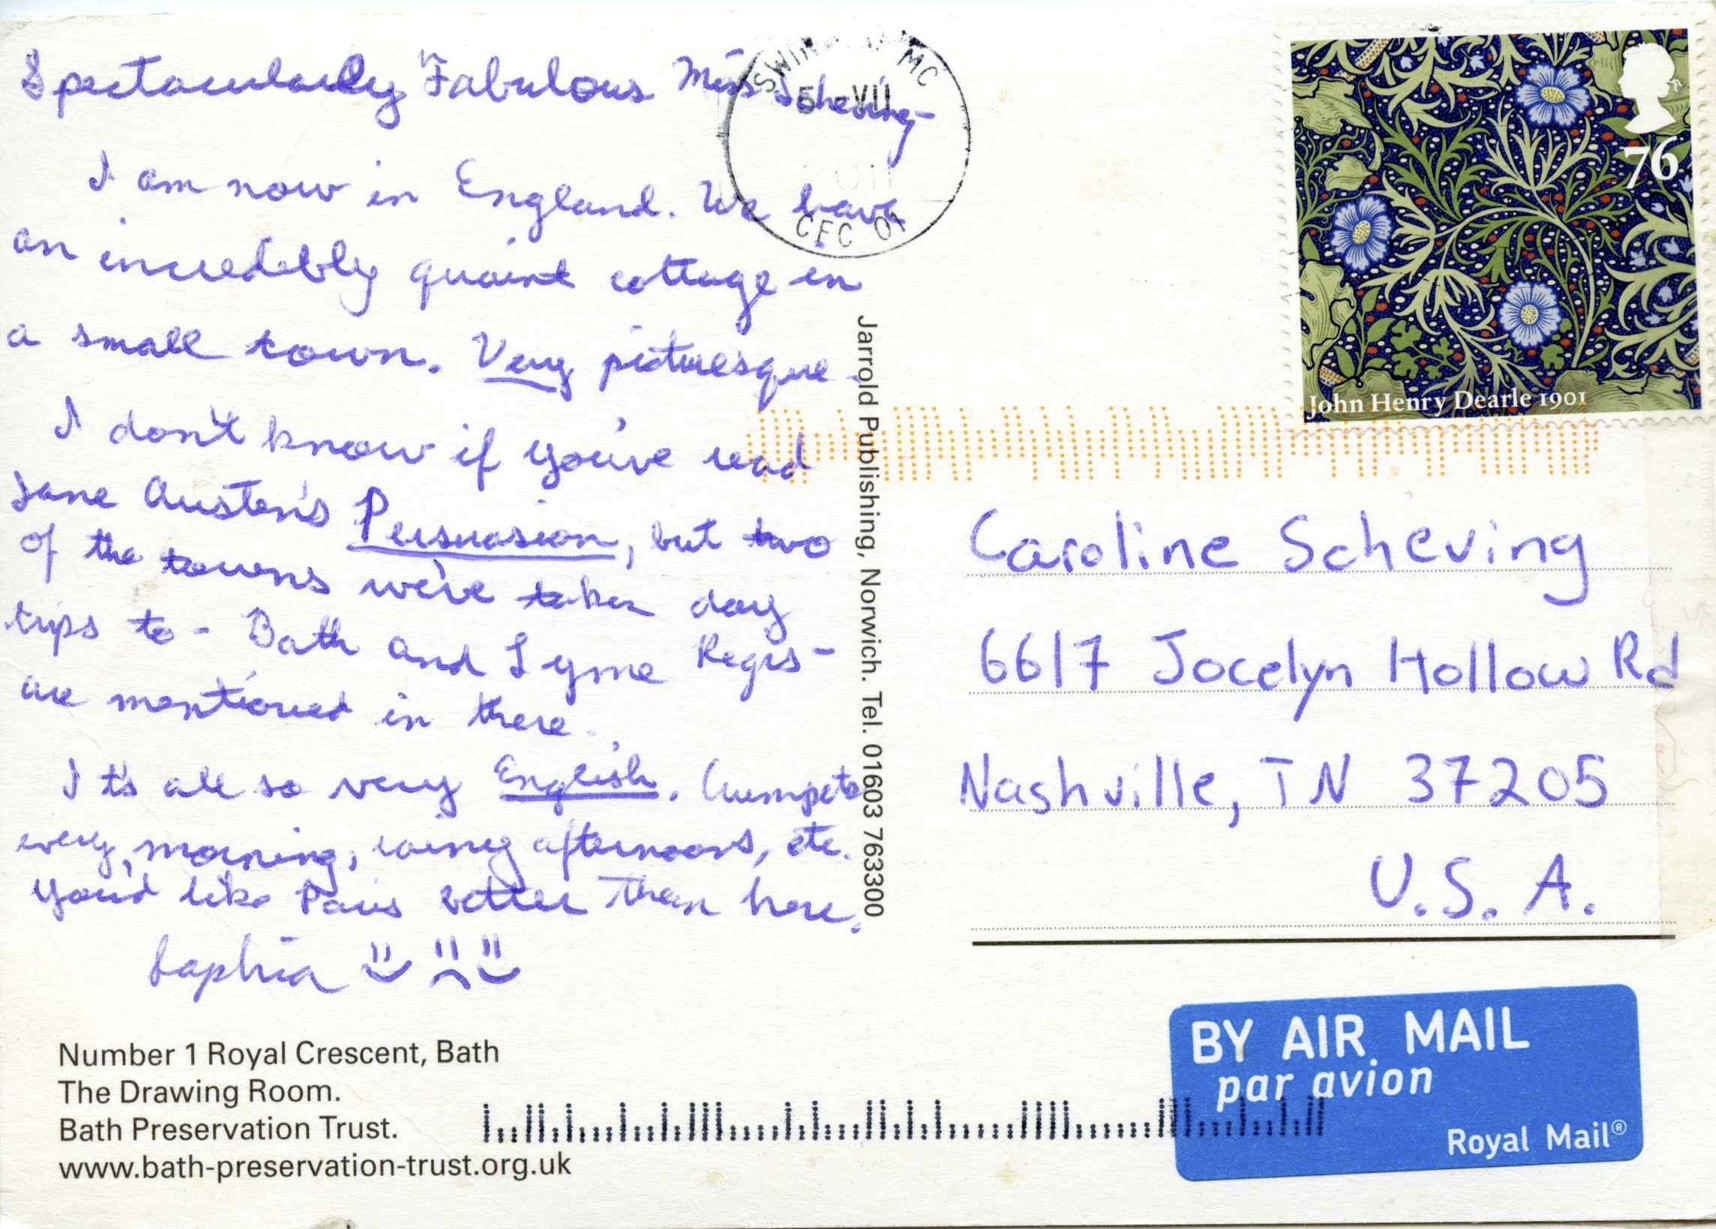 Spectacularly Fabulous Miss Scheving-
I am now in England. We have
an incredibly quaint cottage in
a small town. Very picturesque.
I don't know if you've read
Jane Austen's Persuasion, but two
of the towns we've taken day
trips to - Bath and Lyme Regis -
are mentioned in there.
It's all so very English. Crumpets
every morning, rainy afternoons, etc.
You'd like Paris better than here.
Sophia
Number 1 Royal Crescent, Bath
The Drawing Room.
Bath Preservation Trust.
www.bath-preservation-trust.org.uk
Jarrold Publishing, Norwich. Tel. 01603 763300
MC
5 VII
CFC 01
76
John Henry Dearle 1901
Caroline Scheving
6617 Jocelyn Hollow Rd
Nashville, TN 37205
U.S.A.
BY AIR MAIL
par avion
Royal Mail®